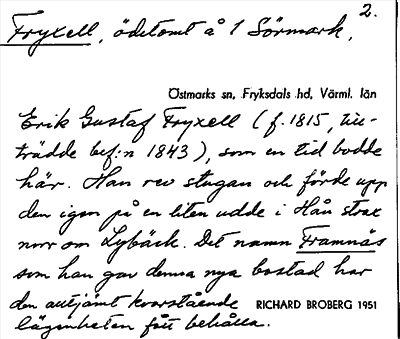 2.
Fryxell, ödetomt å 1 Sörmark,
Östmarks sn, Fryksdals hd, Värml. län
Erik Gustaf Fryxell (f. 1815, till-
trädde bef:n 1843), som en tid bodde
här. Han rev stugan och förde upp
den igen på en liten udde i Hån strax
norr om Lybäck. Det namn Framnäs
som han gav denna nya bostad har
den alltjämt kvarstående
RICHARD BROBERG 1951
lägenheten fått behålla.